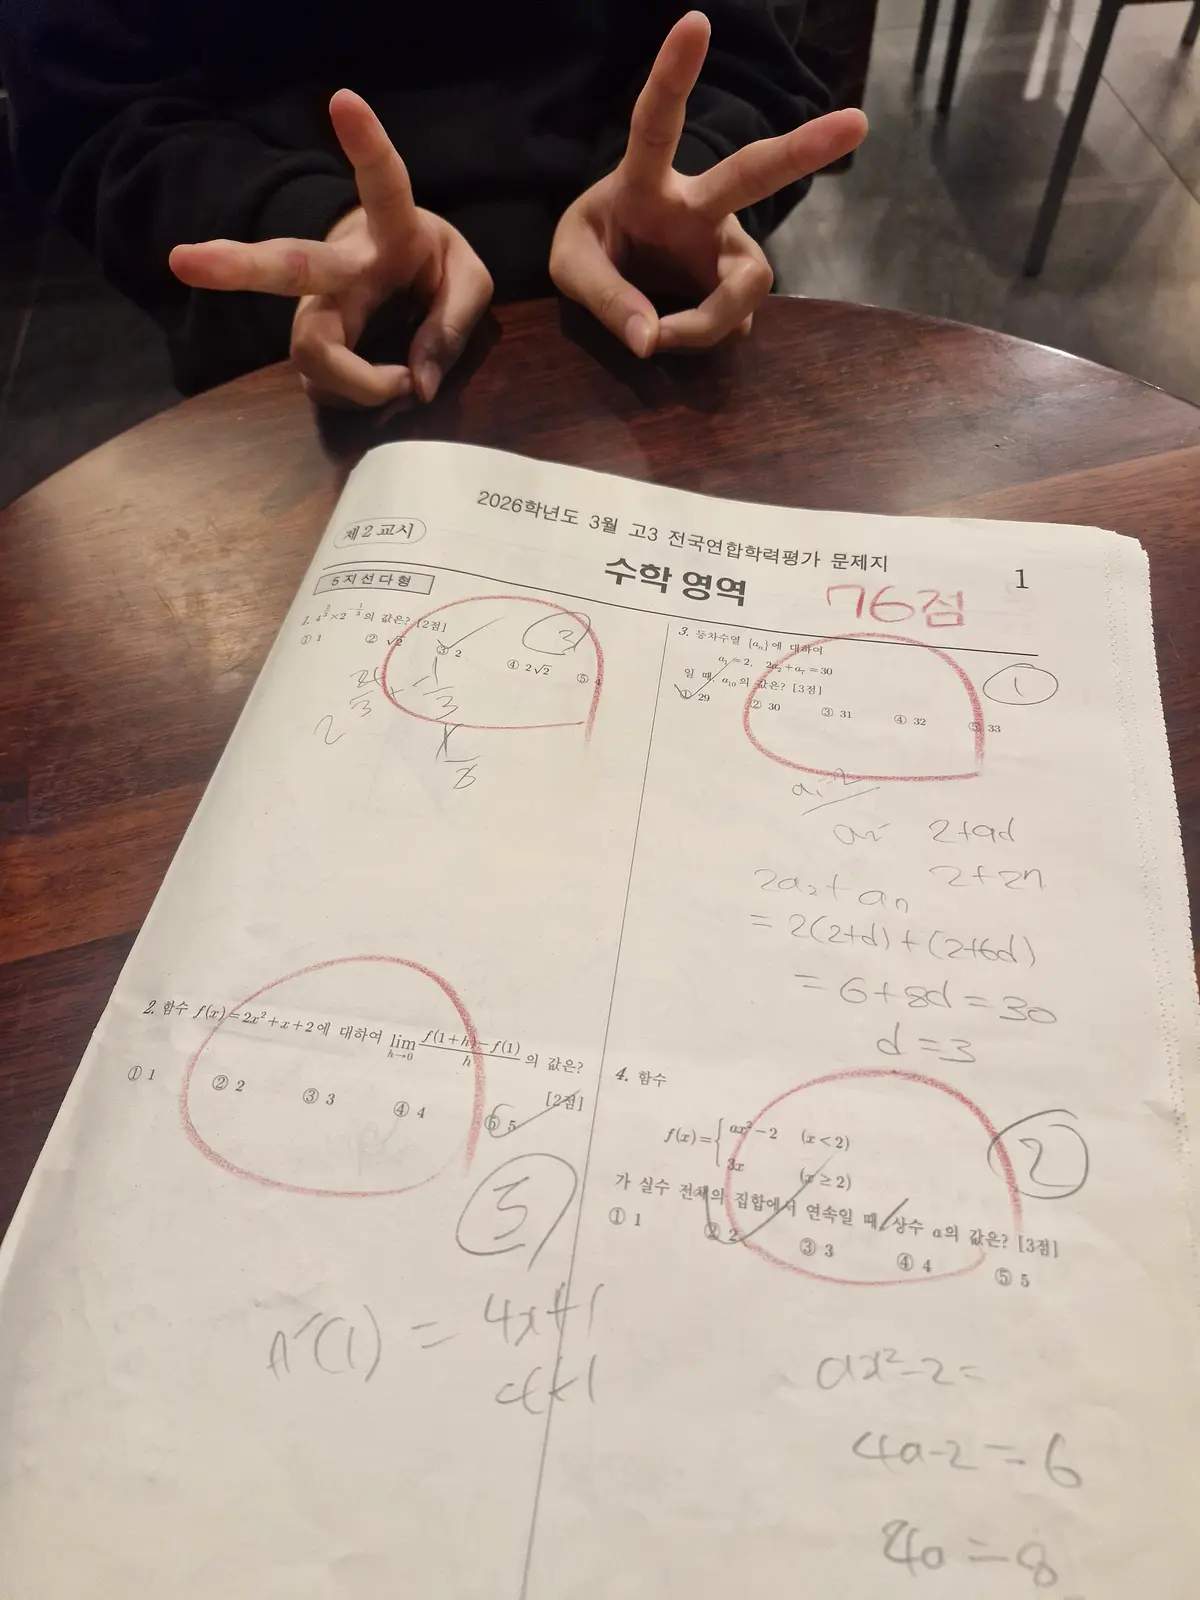 2026학년도 3월 고3 전국연합학력평가 문제지
제2교시
수학 영역
1
76점
5지선다형
1. 4^{2/3}×2^{-1/3}의 값은? [2점]
① 1 ② √2 ③ 2 ④ 2√2 ⑤ 4
3
2. 함수 f(x)=2x²+x+2에 대하여 lim_{h→0} \frac{f(1+h)-f(1)}{h}의 값은?
[2점]
① 1 ② 2 ③ 3 ④ 4 ⑤ 5
5
(1) = 4x+1
3. 등차수열 {aₙ}에 대하여
a₁=2, 2a₂+a₇=30
일 때, a₁₀의 값은? [3점]
① 29 ② 30 ③ 31 ④ 32 ⑤ 33
1
2+2n
= 2(2+d)+(2+6d)
= 6+8d=30
d=3
4. 함수
f(x)={ax²-2 (x<2)
3x (x≥2)
가 실수 전체의 집합에서 연속일 때, 상수 a의 값은? [3점]
① 1 ② 2 ③ 3 ④ 4 ⑤ 5
2
ax²-2=
4a-2=6
4a=8